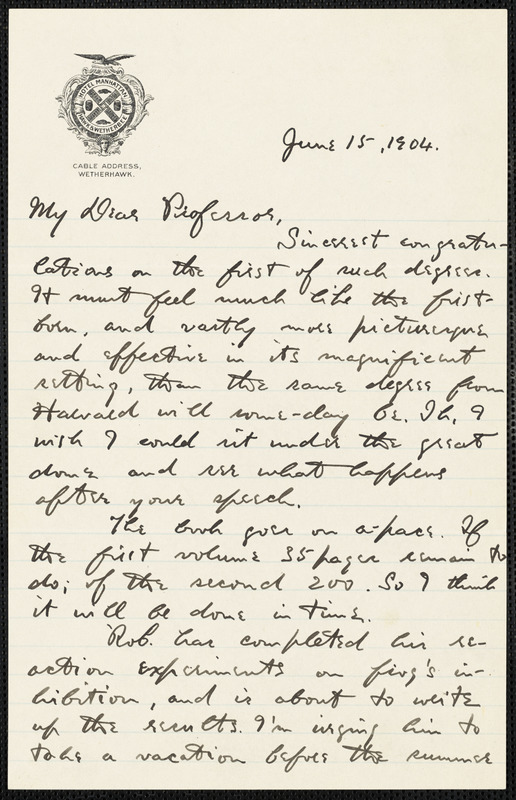 HOTEL MANHATTAN
HAWK & WETHERBEE
CABLE ADDRESS,
WETHERHAWK.
June 15, 1904.
My Dear Professor,
Sincerest congratu-
lations on the first of such degrees.
It must feel much like the first-
born, and vastly more picturesque
and effective in its magnificent
setting, than the same degree from
Harvard will some-day be. Oh, I
wish I could sit under the great
dome and see what happens
after your speech.
The book goes on a-pace. If
the first volume 35 pages remain to
do; of the second 200. So I think
it will be done in time.
Rob. has completed his re-
action experiments on frog's in-
hibition, and is about to write
up the results. I'm urging him to
take a vacation before the summer